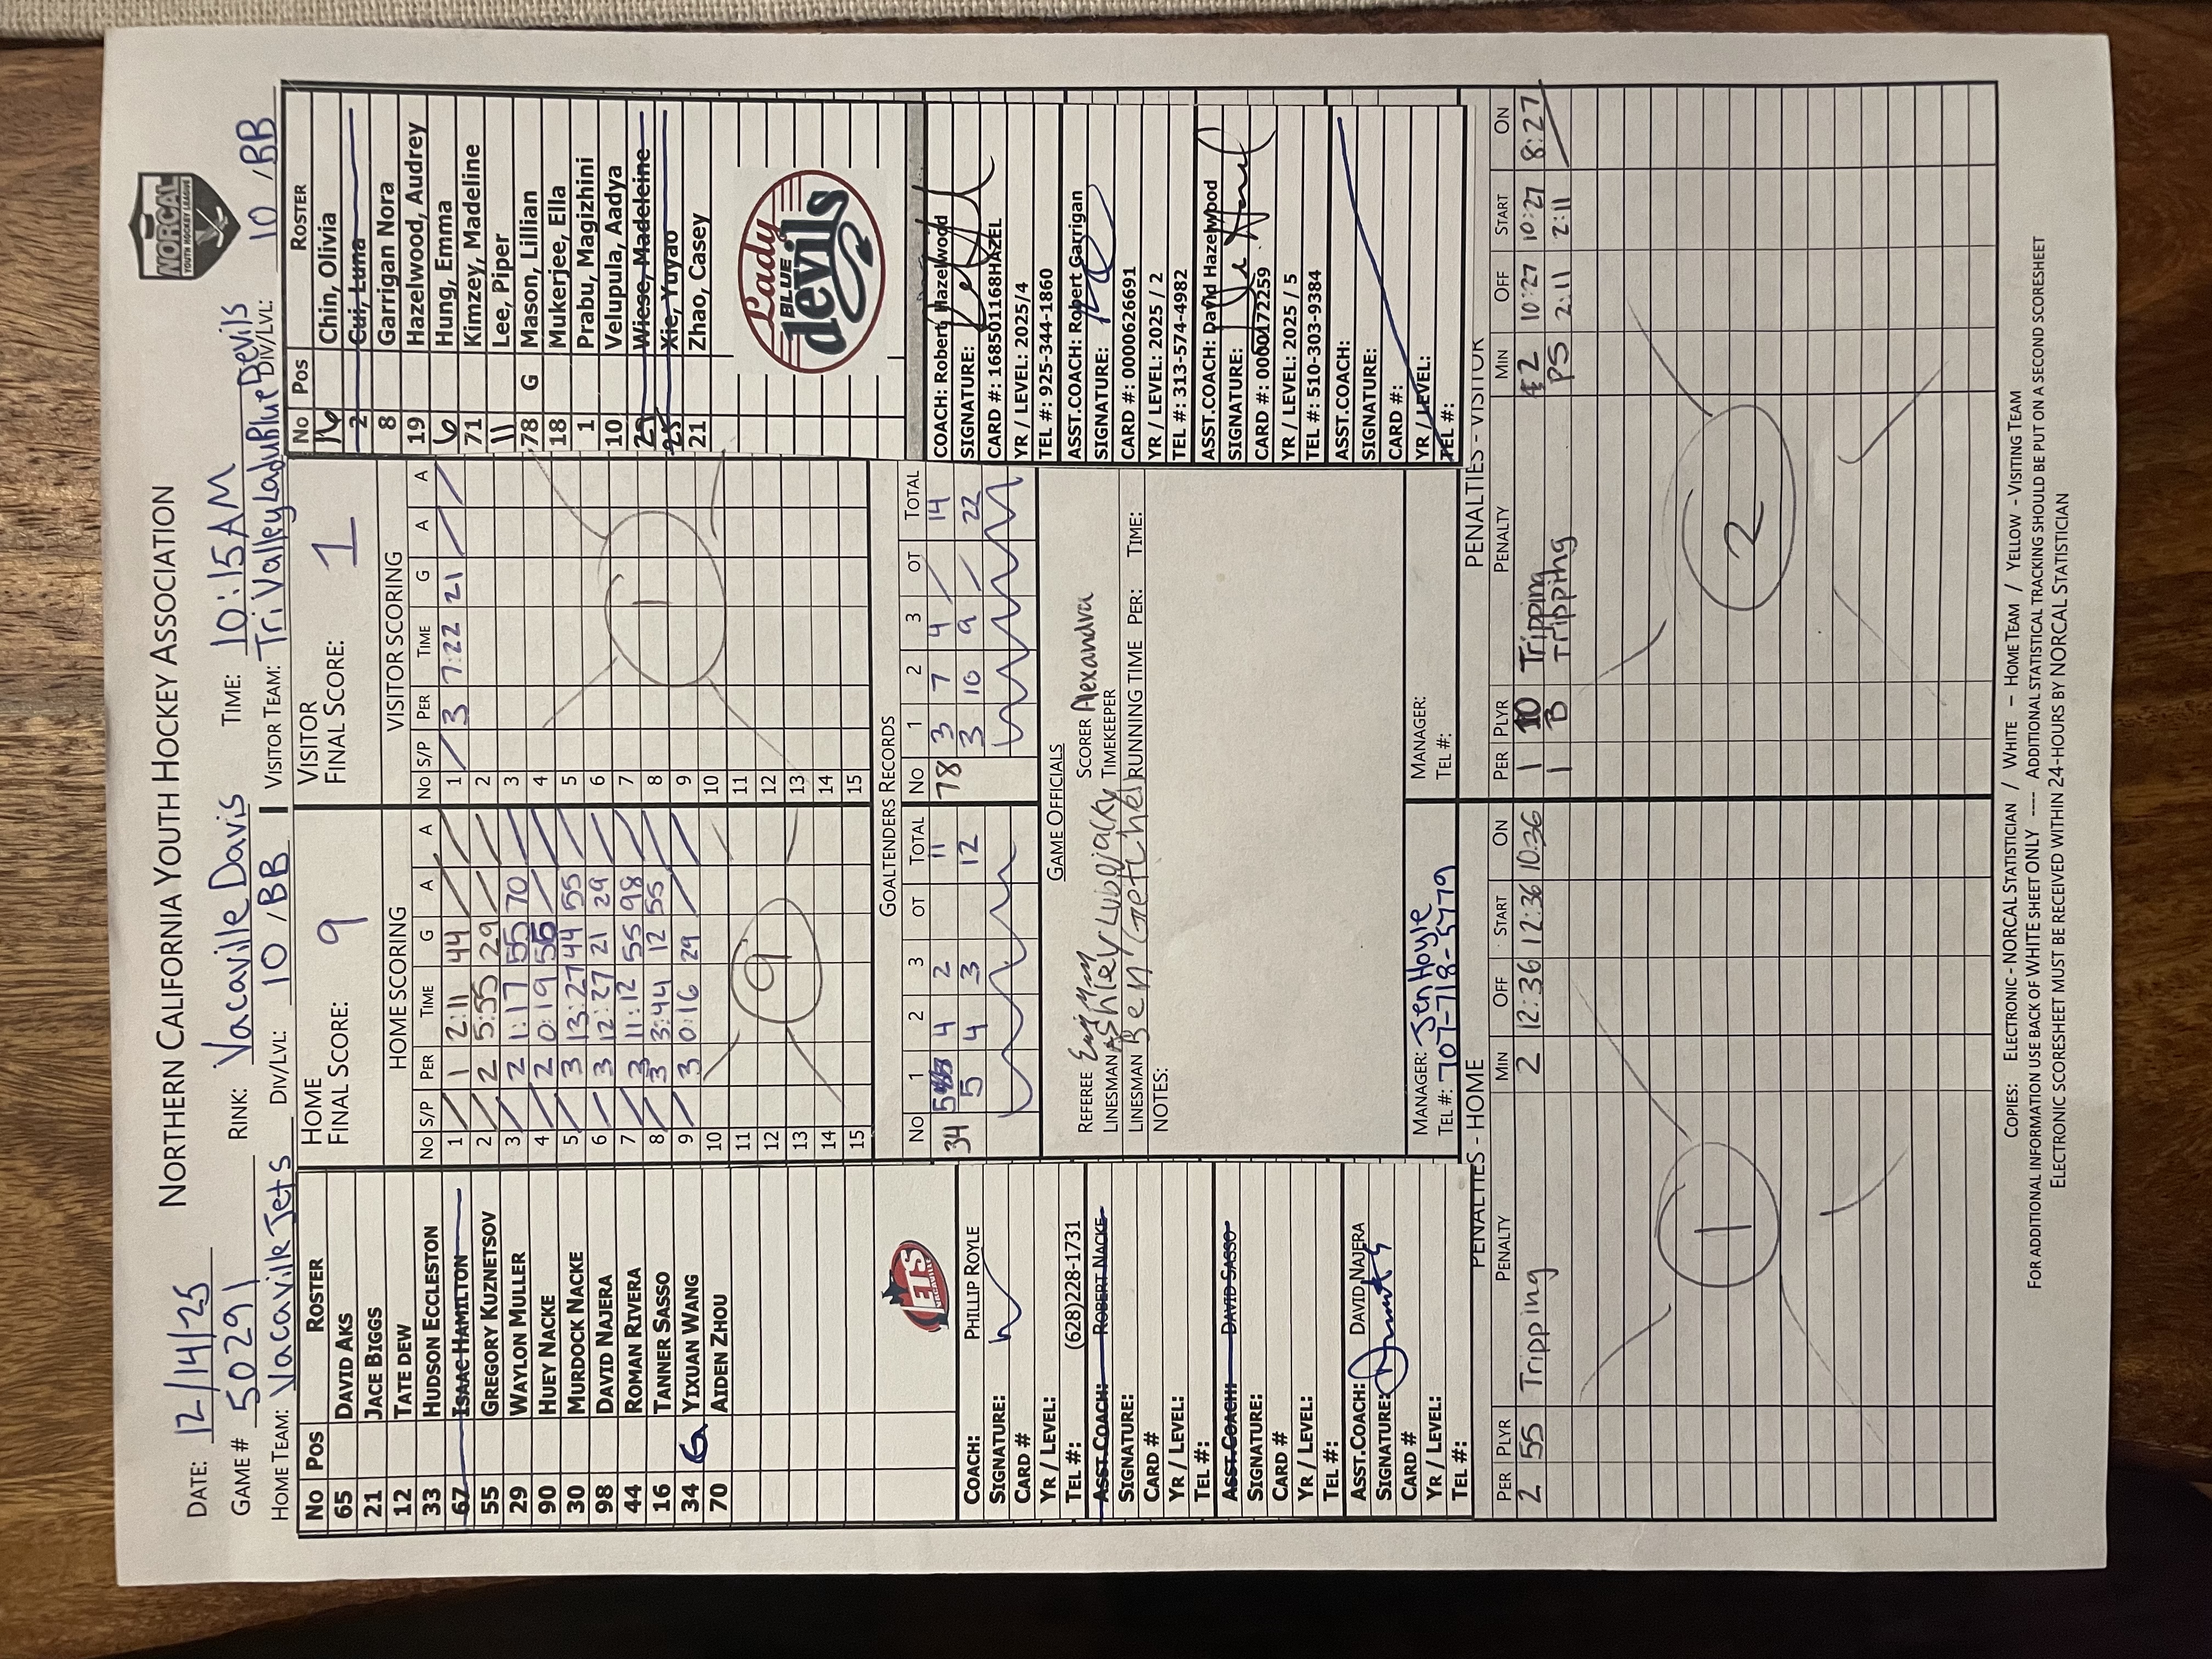 NORTHERN CALIFORNIA YOUTH HOCKEY ASSOCIATION
NORCAL
YOUTH HOCKEY LEAGUE
DATE: 12/14/25
GAME # 50291 RINK: Vacaville Davis TIME: 10:15AM
HOME TEAM: Vacaville Jets DIV/LVL: 10 /BB VISITOR TEAM: Tri Valley Lady Blue Devils DIV/LVL: 10 /BB
No Pos ROSTER
65 DAVID AKS
21 JACE BIGGS
12 TATE DEW
33 HUDSON ECCLESTON
67 ISAAC HAMILTON
55 GREGORY KUZNETSOV
29 WAYLON MULLER
90 HUEY NACKE
30 MURDOCK NACKE
98 DAVID NAJERA
44 ROMAN RIVERA
16 TANNER SASSO
34 G YIXUAN WANG
70 AIDEN ZHOU
JETS
COACH: PHILLIP ROYLE
SIGNATURE:
CARD #
YR / LEVEL:
TEL #: (628)228-1731
ASST.COACH: ROBERT NACKE
SIGNATURE:
CARD #
YR / LEVEL:
TEL #:
ASST.COACH: DAVID SASSO
SIGNATURE:
CARD #
YR / LEVEL:
TEL #:
ASST.COACH: DAVID NAJERA
SIGNATURE:
CARD #
YR / LEVEL:
TEL #:
HOME
FINAL SCORE: 9
HOME SCORING
No S/P PER TIME G A A
1 / 1 2:11 44 / /
2 / 2 5:55 29 / /
3 / 2 1:17 55 70 /
4 / 2 0:19 55 / /
5 / 3 13:27 44 55 /
6 / 3 12:27 21 29 /
7 / 3 11:12 55 98 /
8 / 3 3:44 12 55 /
9 / 3 0:16 29 / /
10
11
12
13
14
15
9
VISITOR
FINAL SCORE: 1
VISITOR SCORING
No S/P PER TIME G A A
1 / 3 7:22 21 / /
2
3
4
5
6
7
8
9
10
11
12
13
14
15
1
GOALTENDERS RECORDS
No 1 2 3 OT TOTAL No 1 2 3 OT TOTAL
34 5 4 2 11 78 3 7 4 / 14
5 4 3 12 3 10 9 / 22
GAME OFFICIALS
REFEREE SCORER Alexandra
LINESMAN Ashley TIMEKEEPER
LINESMAN Ben RUNNING TIME PER: TIME:
NOTES:
MANAGER: Jen Hoyle
TEL #: 707-718-5779
MANAGER:
TEL #:
No Pos ROSTER
16 Chin, Olivia
2 Cui, Luna
8 Garrigan Nora
19 Hazelwood, Audrey
6 Hung, Emma
71 Kimzey, Madeline
11 Lee, Piper
78 G Mason, Lillian
18 Mukerjee, Ella
1 Prabu, Magizhini
10 Velupula, Aadya
29 Wiese, Madeleine
25 Xie, Yuyao
21 Zhao, Casey
Lady
BLUE
devils
COACH: Robert Hazelwood
SIGNATURE:
CARD #: 168501168HAZEL
YR / LEVEL: 2025/4
TEL #: 925-344-1860
ASST.COACH: Robert Garrigan
SIGNATURE:
CARD #: 0000626691
YR / LEVEL: 2025 / 2
TEL #: 313-574-4982
ASST.COACH: David Hazelwood
SIGNATURE:
CARD #: 0000172259
YR / LEVEL: 2025 / 5
TEL #: 510-303-9384
ASST.COACH:
SIGNATURE:
CARD #:
YR / LEVEL:
TEL #:
PENALTIES - HOME
PER PLYR PENALTY MIN OFF START ON
2 55 Tripping 2 12:36 12:36 10:36
1
PENALTIES - VISITOR
PER PLYR PENALTY MIN OFF START ON
1 10 Tripping 2 10:27 10:27 8:27
1 B Tripping PS 2:11 2:11 /
2
COPIES: ELECTRONIC - NORCAL STATISTICIAN / WHITE – HOME TEAM / YELLOW - VISITING TEAM
FOR ADDITIONAL INFORMATION USE BACK OF WHITE SHEET ONLY ---- ADDITIONAL STATISTICAL TRACKING SHOULD BE PUT ON A SECOND SCORESHEET
ELECTRONIC SCORESHEET MUST BE RECEIVED WITHIN 24-HOURS BY NORCAL STATISTICIAN